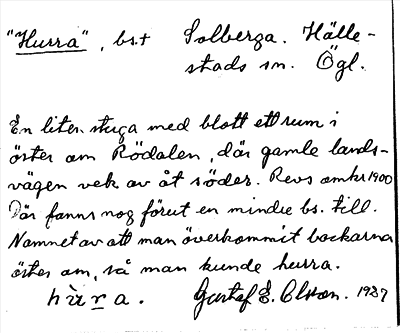 "Hurra", bs.t Solberga. Hälle-
stads sn. Ögl.
En liten stuga med blott ett rum i
öster om Rödalen, där gamle lands-
vägen vek av åt söder. Revs omkr 1900
Där fanns nog förut en mindre bs. till.
Namnet av att man överkommit backarna
öster om, så man kunde hurra.
hùra. Gustaf E. Olsson. 1927